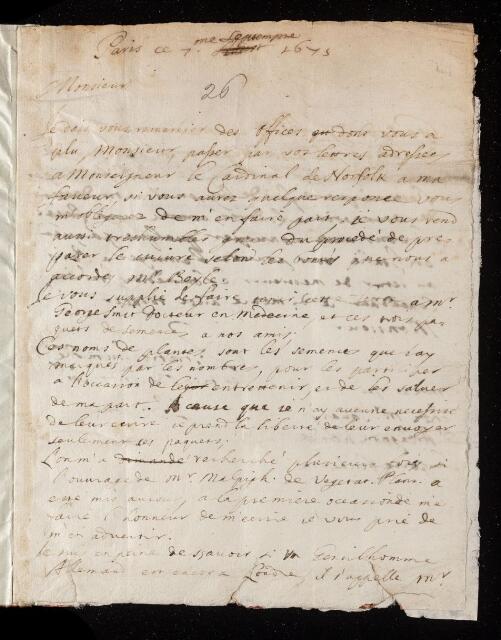 Paris ce 7.me Septempre 1675
Monsieur
26
Je dois vous remercier des Offices dont vous a
plu Monsieur, passer par vos lettres adresées
a Monseigneur le Cardinal de Norfolk a ma
faveur, si vous aurez quelque responce vous
m'en faire part. Je vous rend
aussi treshumbles graces du procédé de pre
parer le cuivre selon
accordes Mr. Beyle
Je vous supplie de faire a Mr.
George Smit docteur en Medecine et ces trois pac
quets de semences a nos amis.
Ces noms de plantes sont les semences que j'ay
marqués par les nombres, pour les participer
a l'occasion de les entretenir, et de les saluer
de ma part. A cause que je n'ay aucune necessité
de leur ecrire je prend la liberté de leur envoyer
seulement ces paquets.
L'on m'a demandé recherché plusieurs fois si
l'ouvrage de Mr. Malpigh. de Vegetat. Plant. a
esté mis au jour, a la premiere occasion de me
faire l'honneur de m'ecrire je vous prie de
m'en advertir.
Je suis en peine de sçavoir si un Gentilhomme
Allemand est encore Londre, il s'appelle Mr.